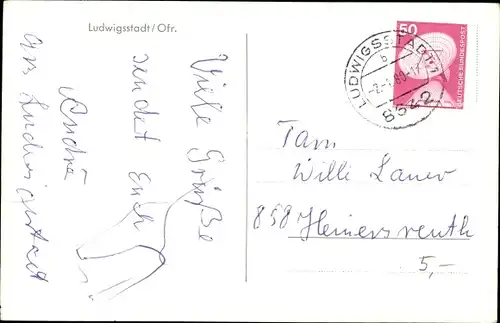 Ludwigsstadt/Ofr.
Viele Grüße
sendet Euch
André
aus Ludwigsstadt
50
DEUTSCHE BUNDESPOST
LUDWIGSSTADT 1
b
8642
Fam
Willi Lauer
858
5,-